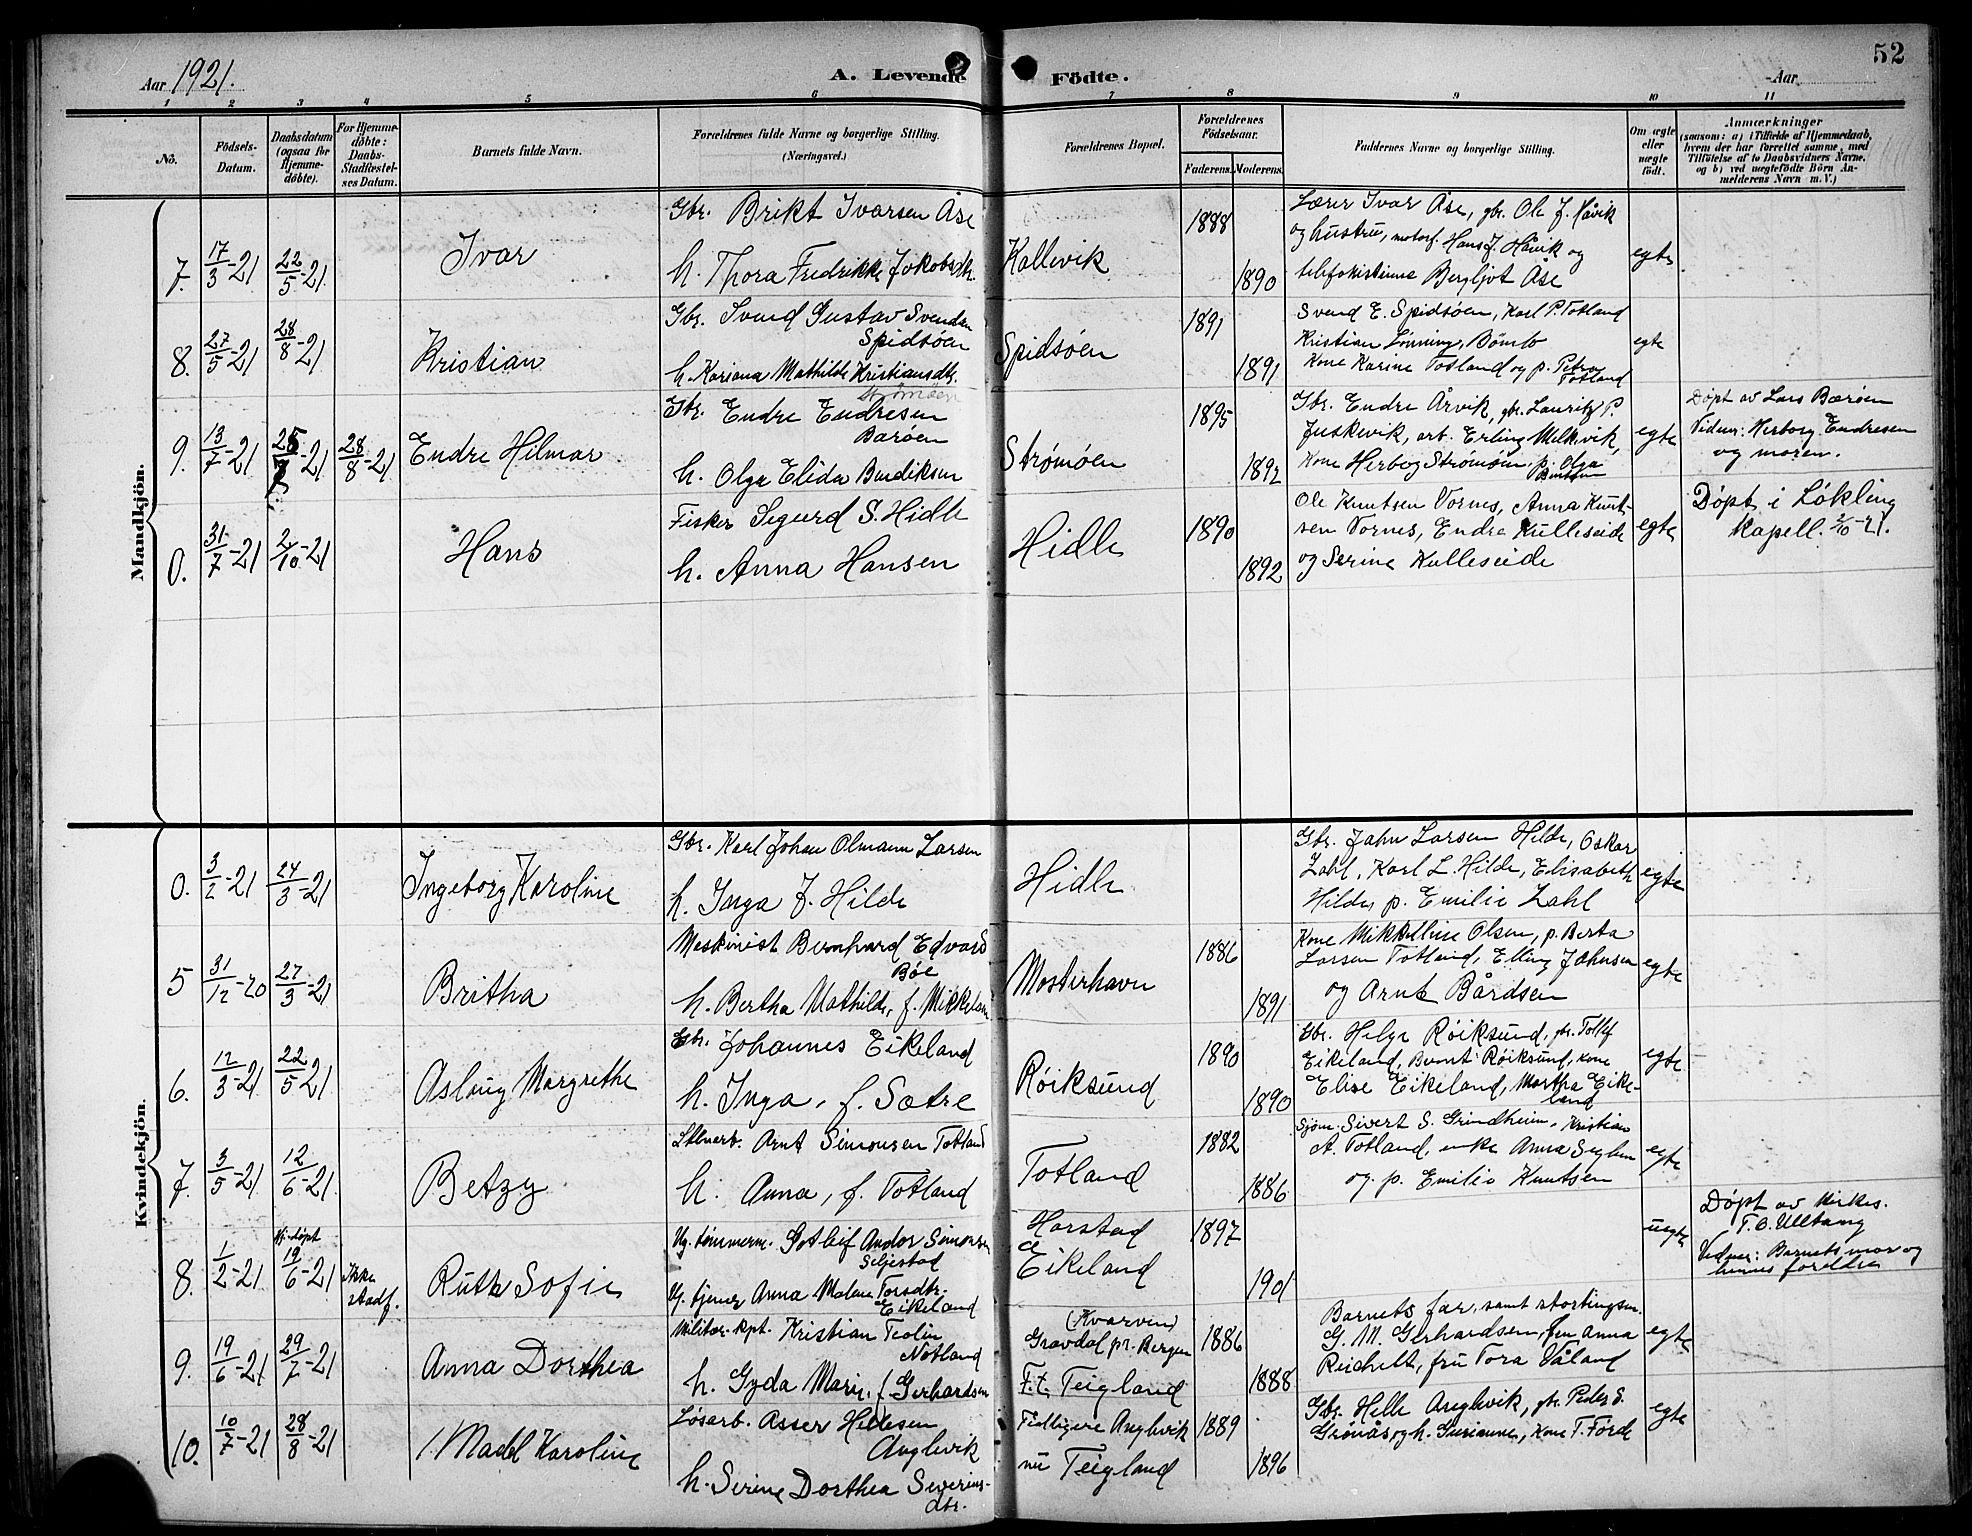 52
Aar 1921.
A. Levende Födte.
Aar
1 2 3 4 5 6 7 8 9 10 11
No.
Födsels-Datum.
Daabsdatum (ogsaa for Hjemme-döbte).
For Hjemme-döbte: Daabs-Stadfæstel-ses Datum.
Barnets fulde Navn.
Forældrenes fulde Navne og borgerlige Stilling. (Næringsvei.)
Forældrenes Bopæl.
Forældrenes Födselsaar.
Faderens. Moderens.
Faddernes Navne og borgerlige Stilling.
Om ægte eller uægte födt.
Anmærkninger
(saasom: a) i Tilfælde af Hjemmedaab, hvem der har forrettet samme, med Tilföielse af to Daabsvidners Navne, og b) ved uægtefödte Börn An-melderens Navn m. V.)
Mandkjön.
7. 17/3-21 22/5-21 Ivar
Gbr. Brikt Ivarsen Åse
h. Thora Fredrikke Jakobsdtr.
Kallevik
1888
1890
Lærer Ivar Åse, gbr. Ole J. Håvik
og hustru, motorf. Hans J. Håvik og
telefonistinne Bergljot Åse
egte
8. 27/5-21 28/8-21 Kristian
Gbr. Svend Gustav Svendsen
Spidsøen
h. Kariana Mathilde Kristiansdtr.
Strømøen
Spidsøen
1891
1891
Svend E. Spidsøen, Karl P. Totland
Kristian Lønning, Bømlo
Kone Karine Totland og p. Petra
Totland
egte
9. 13/7-21 -21 28/8-21 Endre Hilmar
Gbr. Endre Endresen
Barøen
h. Olga Elida Bendiksen
Strømøen
1895
1892
Gbr. Endre Årvik, gbr. Lauritz P.
Juskevik, arb. Erling Melkvik,
Kone Herborg Strømøen p. Olga
egte
Døpt av Lars Barøen
Vidner: Herborg Endresen
og moren.
0. 31/7-21 2/10-21 Hans
Fisker Sigurd S. Hidle
h. Anna Hansen
Hidle
1890
1892
Ole Knutsen Vornes, Anna Knut-
sen Vornes, Endre Kulleseide
og Serine Kulleseide
egte
Døpt i Løkling
Kapell. 2/10-21.
Kvindekjön.
0. 3/2-21 24/3-21 Ingeborg Karoline
Gbr. Karl Johan Olmann Larsen
h. Inga J. Hilde
Hidle
Gbr. Jahn Larsen Hilde, Oskar
Zahl, Karl L. Hilde, Elisabeth
Hilde, p. Emilie Zahl
egte
5 31/12-20 27/3-21 Britha
Maskinist Bernhard Edvard
Bøe
h. Bertha Mathilde, f. Mikkelsen
Mosterhavn
1886
1891
Kone Mikkeline Olsen, p. Berta
Larsen Totland, Elling Johnsen
og Arnt Bårdsen
egte
6. 12/3-21 22/5-21 Aslaug Margrethe
Gbr. Johannes Eikeland
h. Inga, f. Sætre
Røiksund
1890
1890
Gbr. Helge Røiksund, gbr. Tollef
Eikeland, Bernt Røiksund, kone
Elise Eikeland, Martha Eike-
land
egte
7. 3/5-21 12/6-21 Betzy
Arnt Simonsen Totland
h. Anna, f. Totland
Totland
1882
1886
Sjøm. Sivert S. Grindheim, Kristian
A. Totland, enke Anna Seglem
og p. Emilie Knutsen
egte
8. 1/2-21 Hj.døpt 19/6-21 Ikke stadf. Ruth Sofie
Ug. tømmerm. Gotleif Andor Simonsen
Seljestad
Ug. tjener Anna Malene Torsdtr.
Eikeland
Harstad
&
Eikeland
1897
1901
uegte
Døpt av Kirkes.
T. O. Ulltang
Vidner: Barnets mor og
hennes foreldre
9. 19/6-21 29/7-21 Anna Dorthea
Militær-kpt. Kristian Teolin
Notland
h. Gyda Marie, f. Gerhardsen
(Kvarven)
Gravdal pr. Bergen
F.t. Teigland
1886
1888
Barnets far, samt stortingsm.
G. M. Gerhardsen, fru Anna
Reichelt, fru Tora Våland
egte
10. 10/7-21 28/8-21 Madel Karoline
Løsarb. Asser Hellesen
Anglevik
h. Serine Dorthea Severins-
dtr.
Tidligere Anglevik
nu Teigland
1889
1896
Gbr. Helle Anglevik, gbr. Peder S.
Grønås og h. Gurianne, kone T. Førde
egte